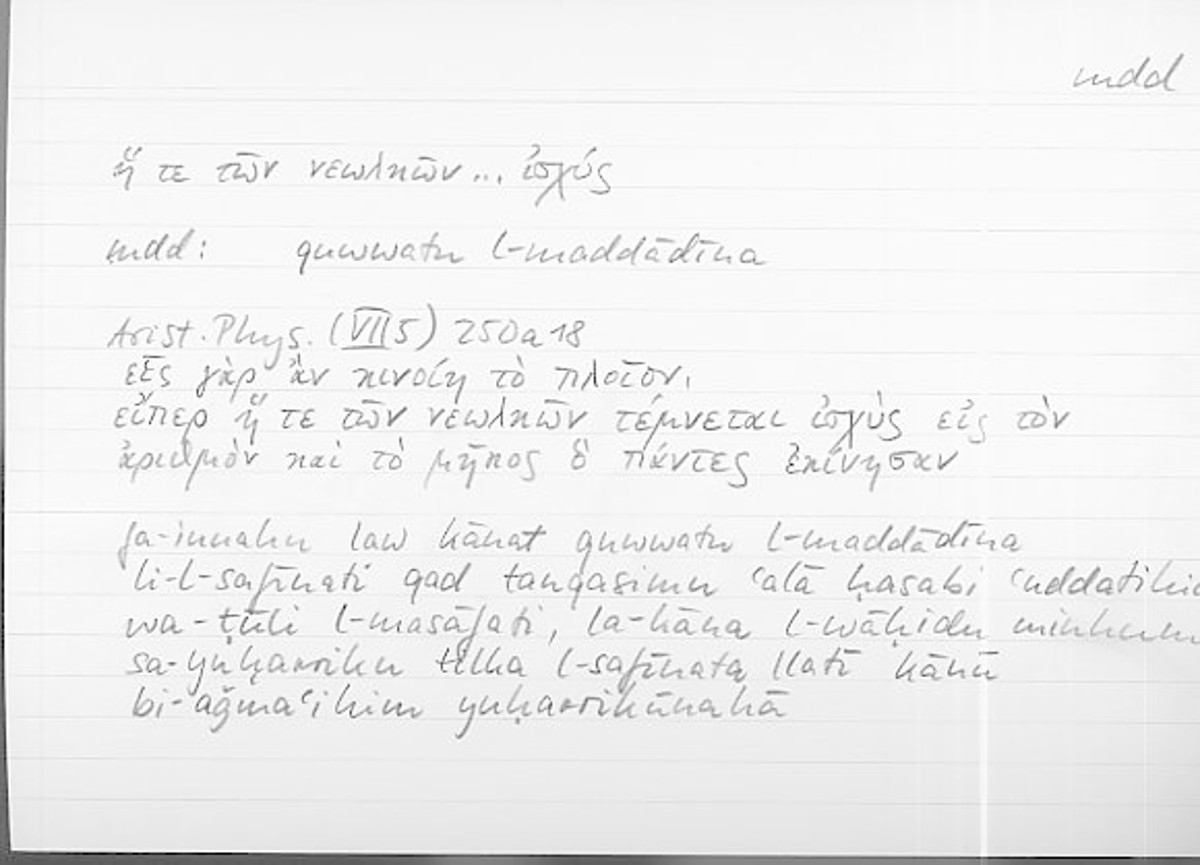 mdd
ἥ τε τῶν νεωλκῶν... ἰσχύς
mdd: quwwatu l-maddādīna
Arist. Phys. (VII 5) 250a18
εἷς γὰρ ἂν κινοίη τὸ πλοῖον,
εἴπερ ἥ τε τῶν νεωλκῶν τέμνεται ἰσχὺς εἰς τὸν
ἀριθμὸν καὶ τὸ μῆκος ὃ πάντες ἐκίνησαν
fa-innahu law kānat quwwatu l-maddādīna
li-l-safīnati qad tanqasimu ʿalā ḥasabi
wa-ṭūli l-masāfati, la-kāna l-wāḥidu minhum
sa-yuḥarriku tilka l-safīnata llatī kānū
bi-ʾaǧmaʿihim yuḥarrikūnahā